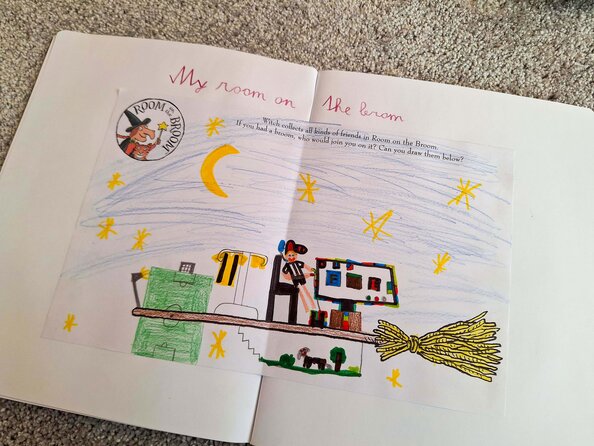 My room on the brom
ROOM
ON THE
BROOM
Witch collects all kinds of friends in Room on the Broom.
If you had a broom, who would join you on it? Can you draw them below?